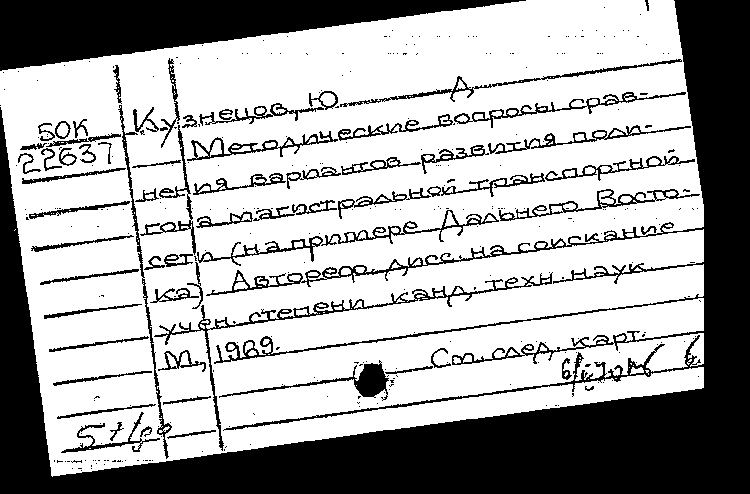 50К
22637
Кузнецов, Ю Д
Методические вопросы срав-
нения вариантов развития поли-
гона магистральной транспортной
сети (на примере Дальнего Восто-
ка). Автореф. дисс. на соискание
учен. степени канд. техн. наук
М., 1969.
См. след. карт.